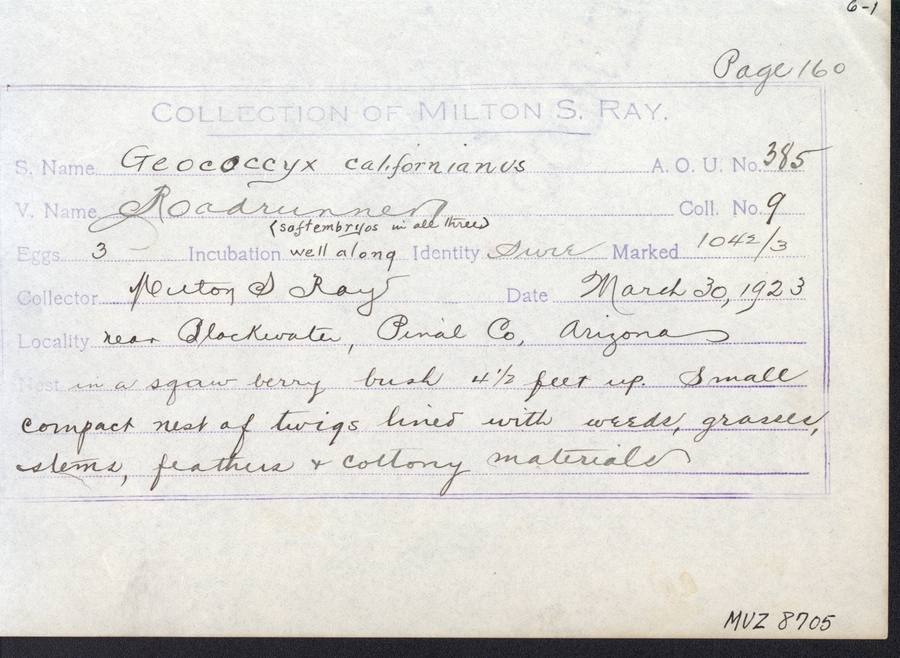 6-1
Page 160
COLLECTION OF MILTON S. RAY.
S. Name Geococcyx californianus A. O. U. No. 385
V. Name Roadrunner Coll. No. 9
(soft embryos in all three)
Eggs 3 Incubation well along Identity Sure Marked 1042/3
Collector Milton S Ray Date March 30, 1923
Locality near Blackwater, Pinal Co, Arizona
Nest in a sqaw berry bush 4½ feet up. Small
compact nest of twigs lined with weeds, grasses,
stems, feathers & cottony materials
MVZ 8705